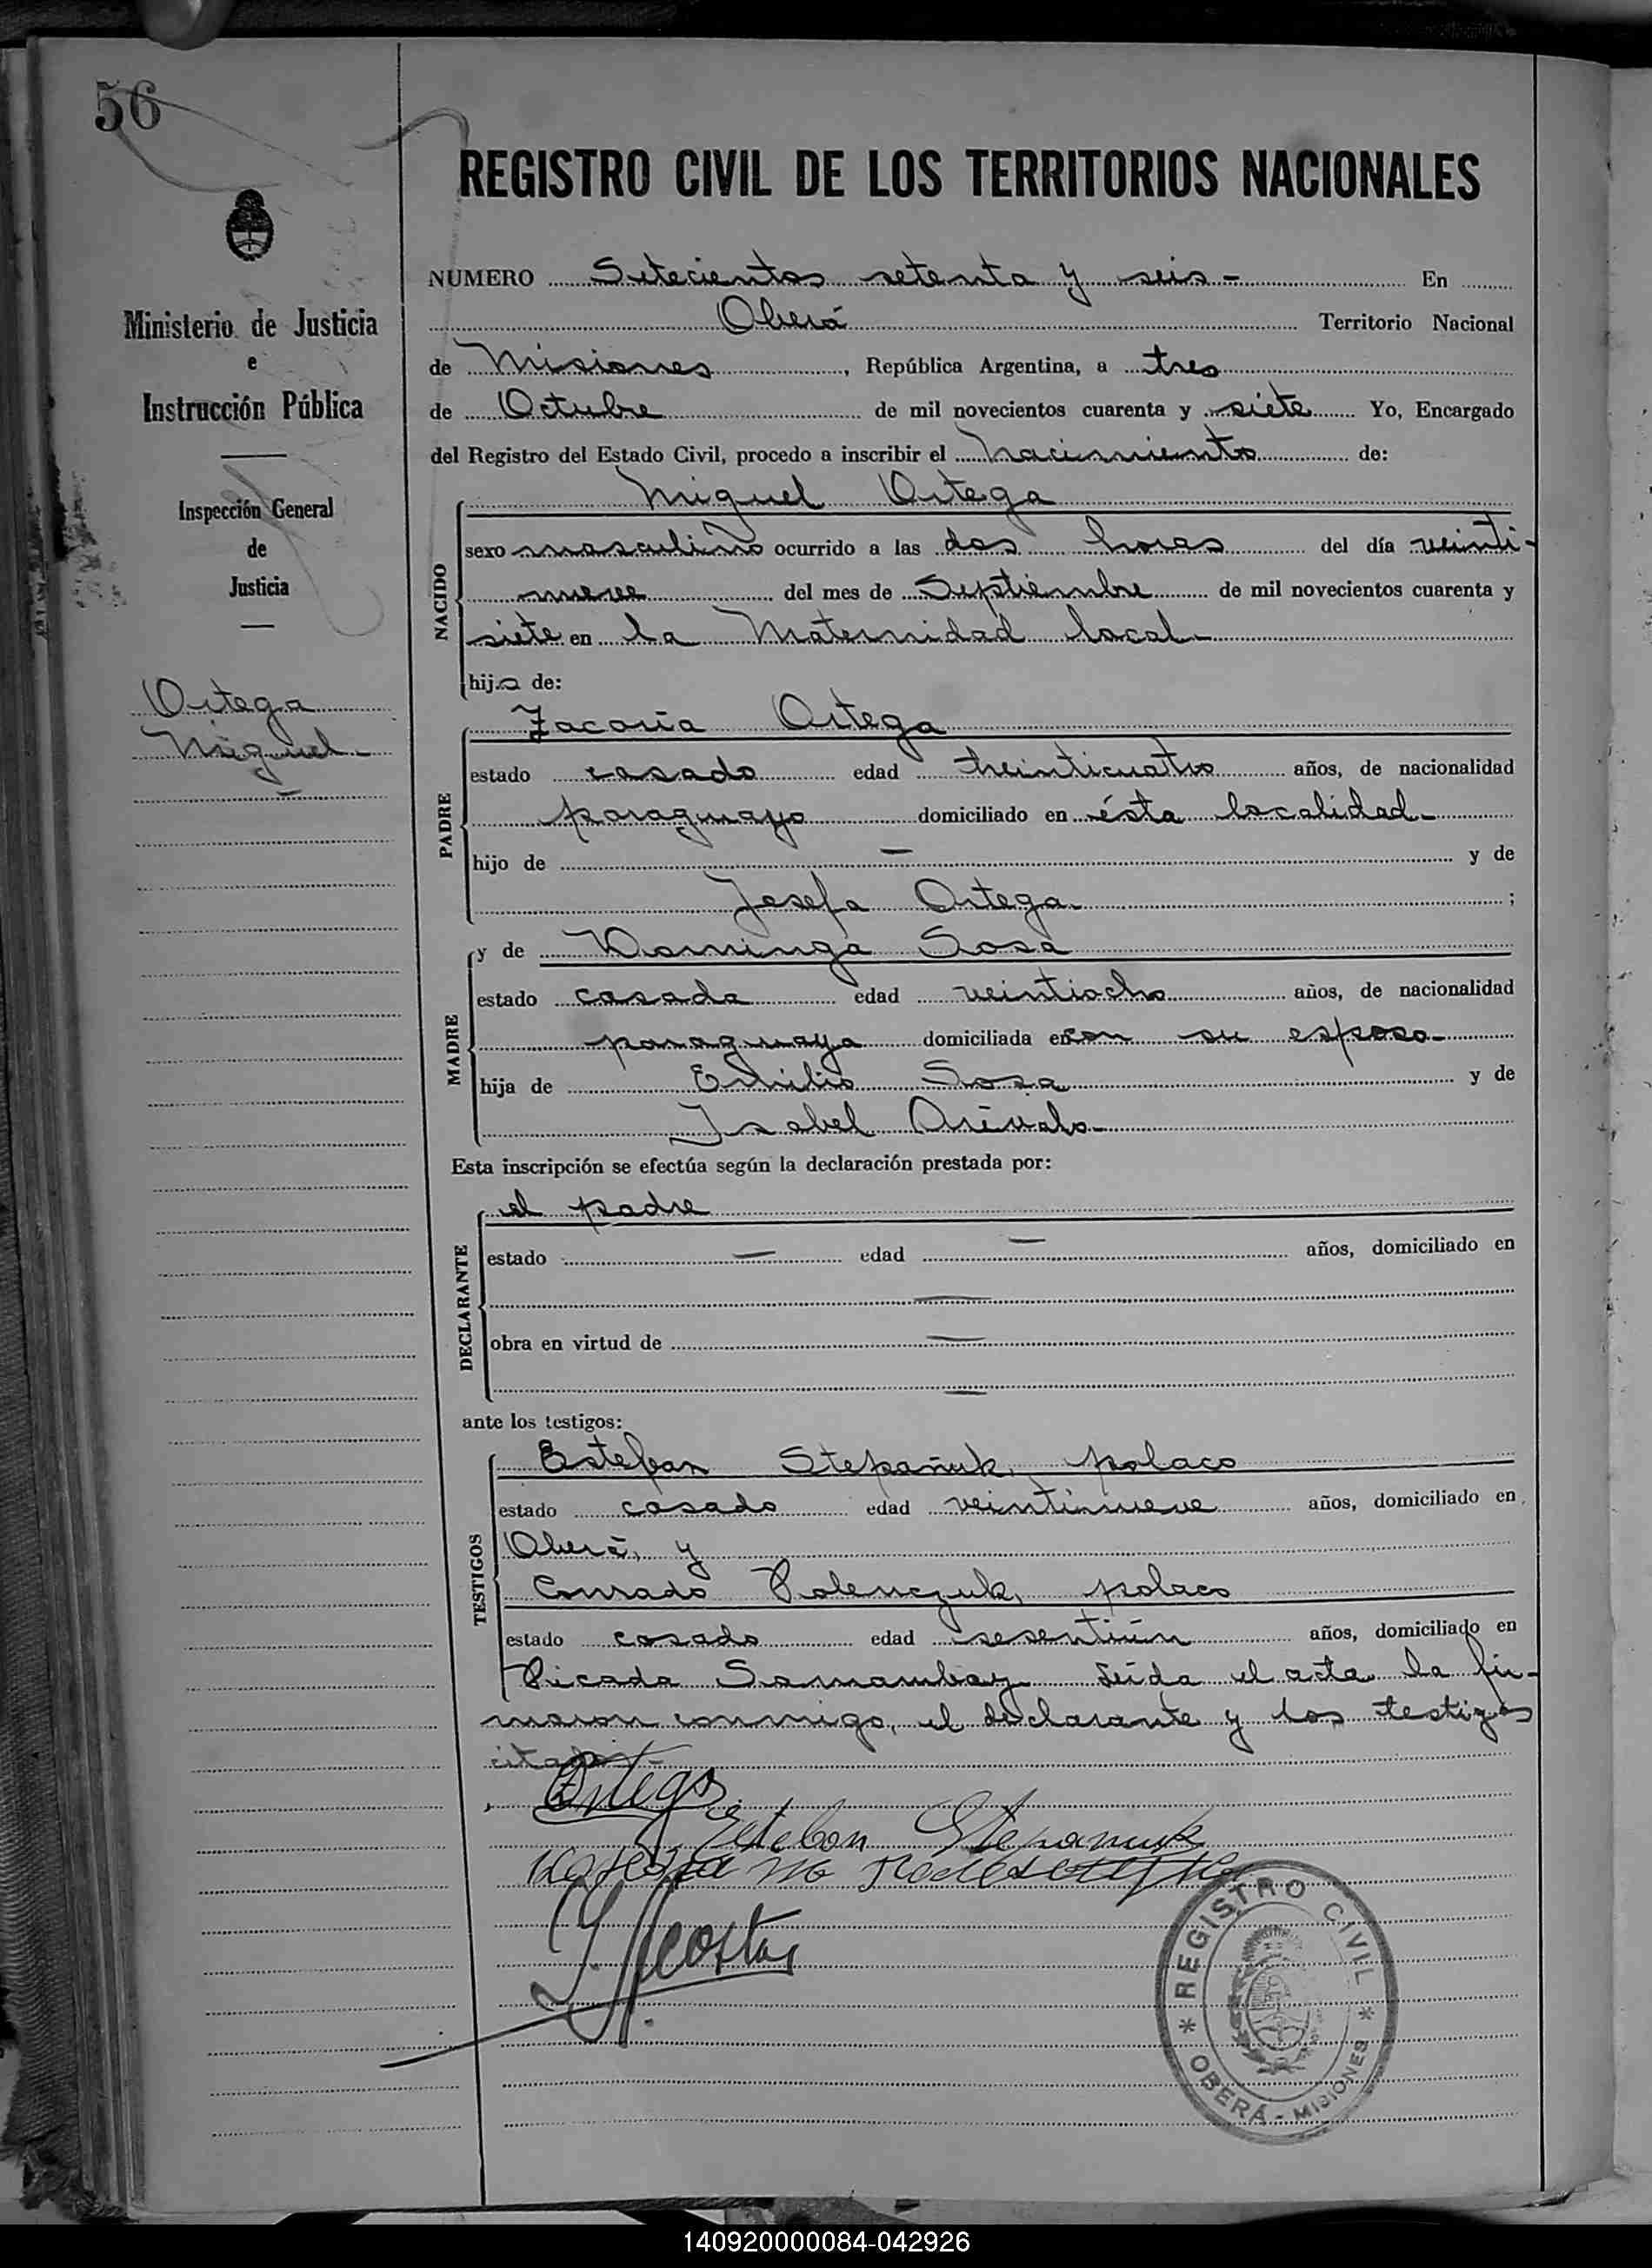 56
REGISTRO CIVIL DE LOS TERRITORIOS NACIONALES
Ministerio de Justicia
e
Instrucción Pública
Inspección General
de
Justicia
Ortega
Miguel
NUMERO Setecientos setenta y seis - En
Oberá Territorio Nacional
de Misiones, República Argentina, a tres
de Octubre de mil novecientos cuarenta y siete Yo, Encargado
del Registro del Estado Civil, procedo a inscribir el nacimiento de:
NACIDO
Miguel Ortega
sexo masculino ocurrido a las dos horas del día veinti-
nueve del mes de Septiembre de mil novecientos cuarenta y
siete en la Maternidad local-
hijo de:
PADRE
Zacaría Ortega
estado casado edad treinticuatro años, de nacionalidad
paraguayo domiciliado en ésta localidad-
hijo de — y de
Josefa Ortega ;
MADRE
y de Dominga Sosa
estado casada edad veintiocho años, de nacionalidad
paraguaya domiciliada en con su esposo-
hija de Emilio Sosa y de
Isabel Arévalo-
Esta inscripción se efectúa según la declaración prestada por:
DECLARANTE
el padre
estado — edad — años, domiciliado en
—
obra en virtud de —
—
ante los testigos:
TESTIGOS
Esteban Stepañuk, polaco
estado casado edad veintinueve años, domiciliado en
Oberá, y
Conrado polaco
estado casado edad sesentiún años, domiciliado en
Picada Samambay Leída el acta la fir-
maron conmigo, el declarante y los testigos
citados-
Ortega
Esteban Stepanuk
Acosta
REGISTRO CIVIL
* OBERÁ - MISIONES *
140920000084-042926